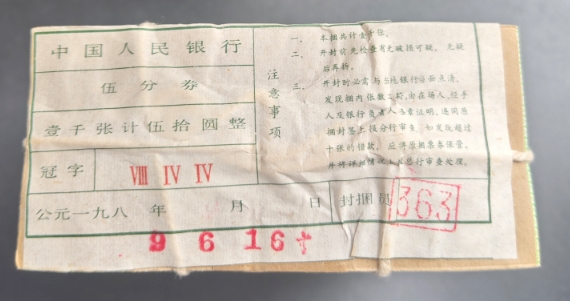 中国人民银行
伍分券
壹千张计伍拾圆整
冠字 VIII IV IV
公元一九八 年 月 日 封捆员 363
9 6 16
注意事项
一、本捆共计壹千张。
二、开封前先检查有无破损可疑，无破
后再拆。
三、开封时必需与当地银行当面点清，
发现捆内张数 ，由在场人、经手
人及银行负责人 章证明，连同原
捆封签上报分行审查。如发现超过
十张的错款，应将原捆票券保管，
并将详细情况上报总行审查处理。